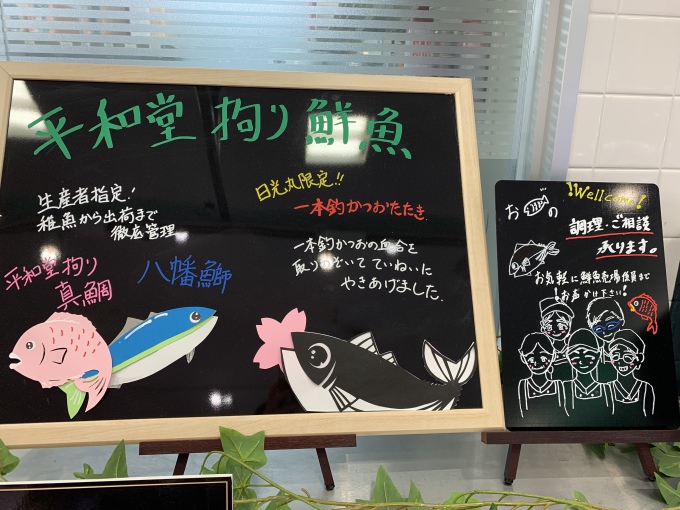 平和堂 拘り 鮮魚
生産者指定!
稚魚から出荷まで
徹底管理
平和堂拘り
真鯛
八幡鰤
日光丸限定!!
一本釣かつおたたき
一本釣かつおの血合を
取りのぞいて ていねいに
やきあげました.
!Welcome!
おの
調理・ご相談
承ります。
お気軽に鮮魚売場係員まで
お声かけ下さい!